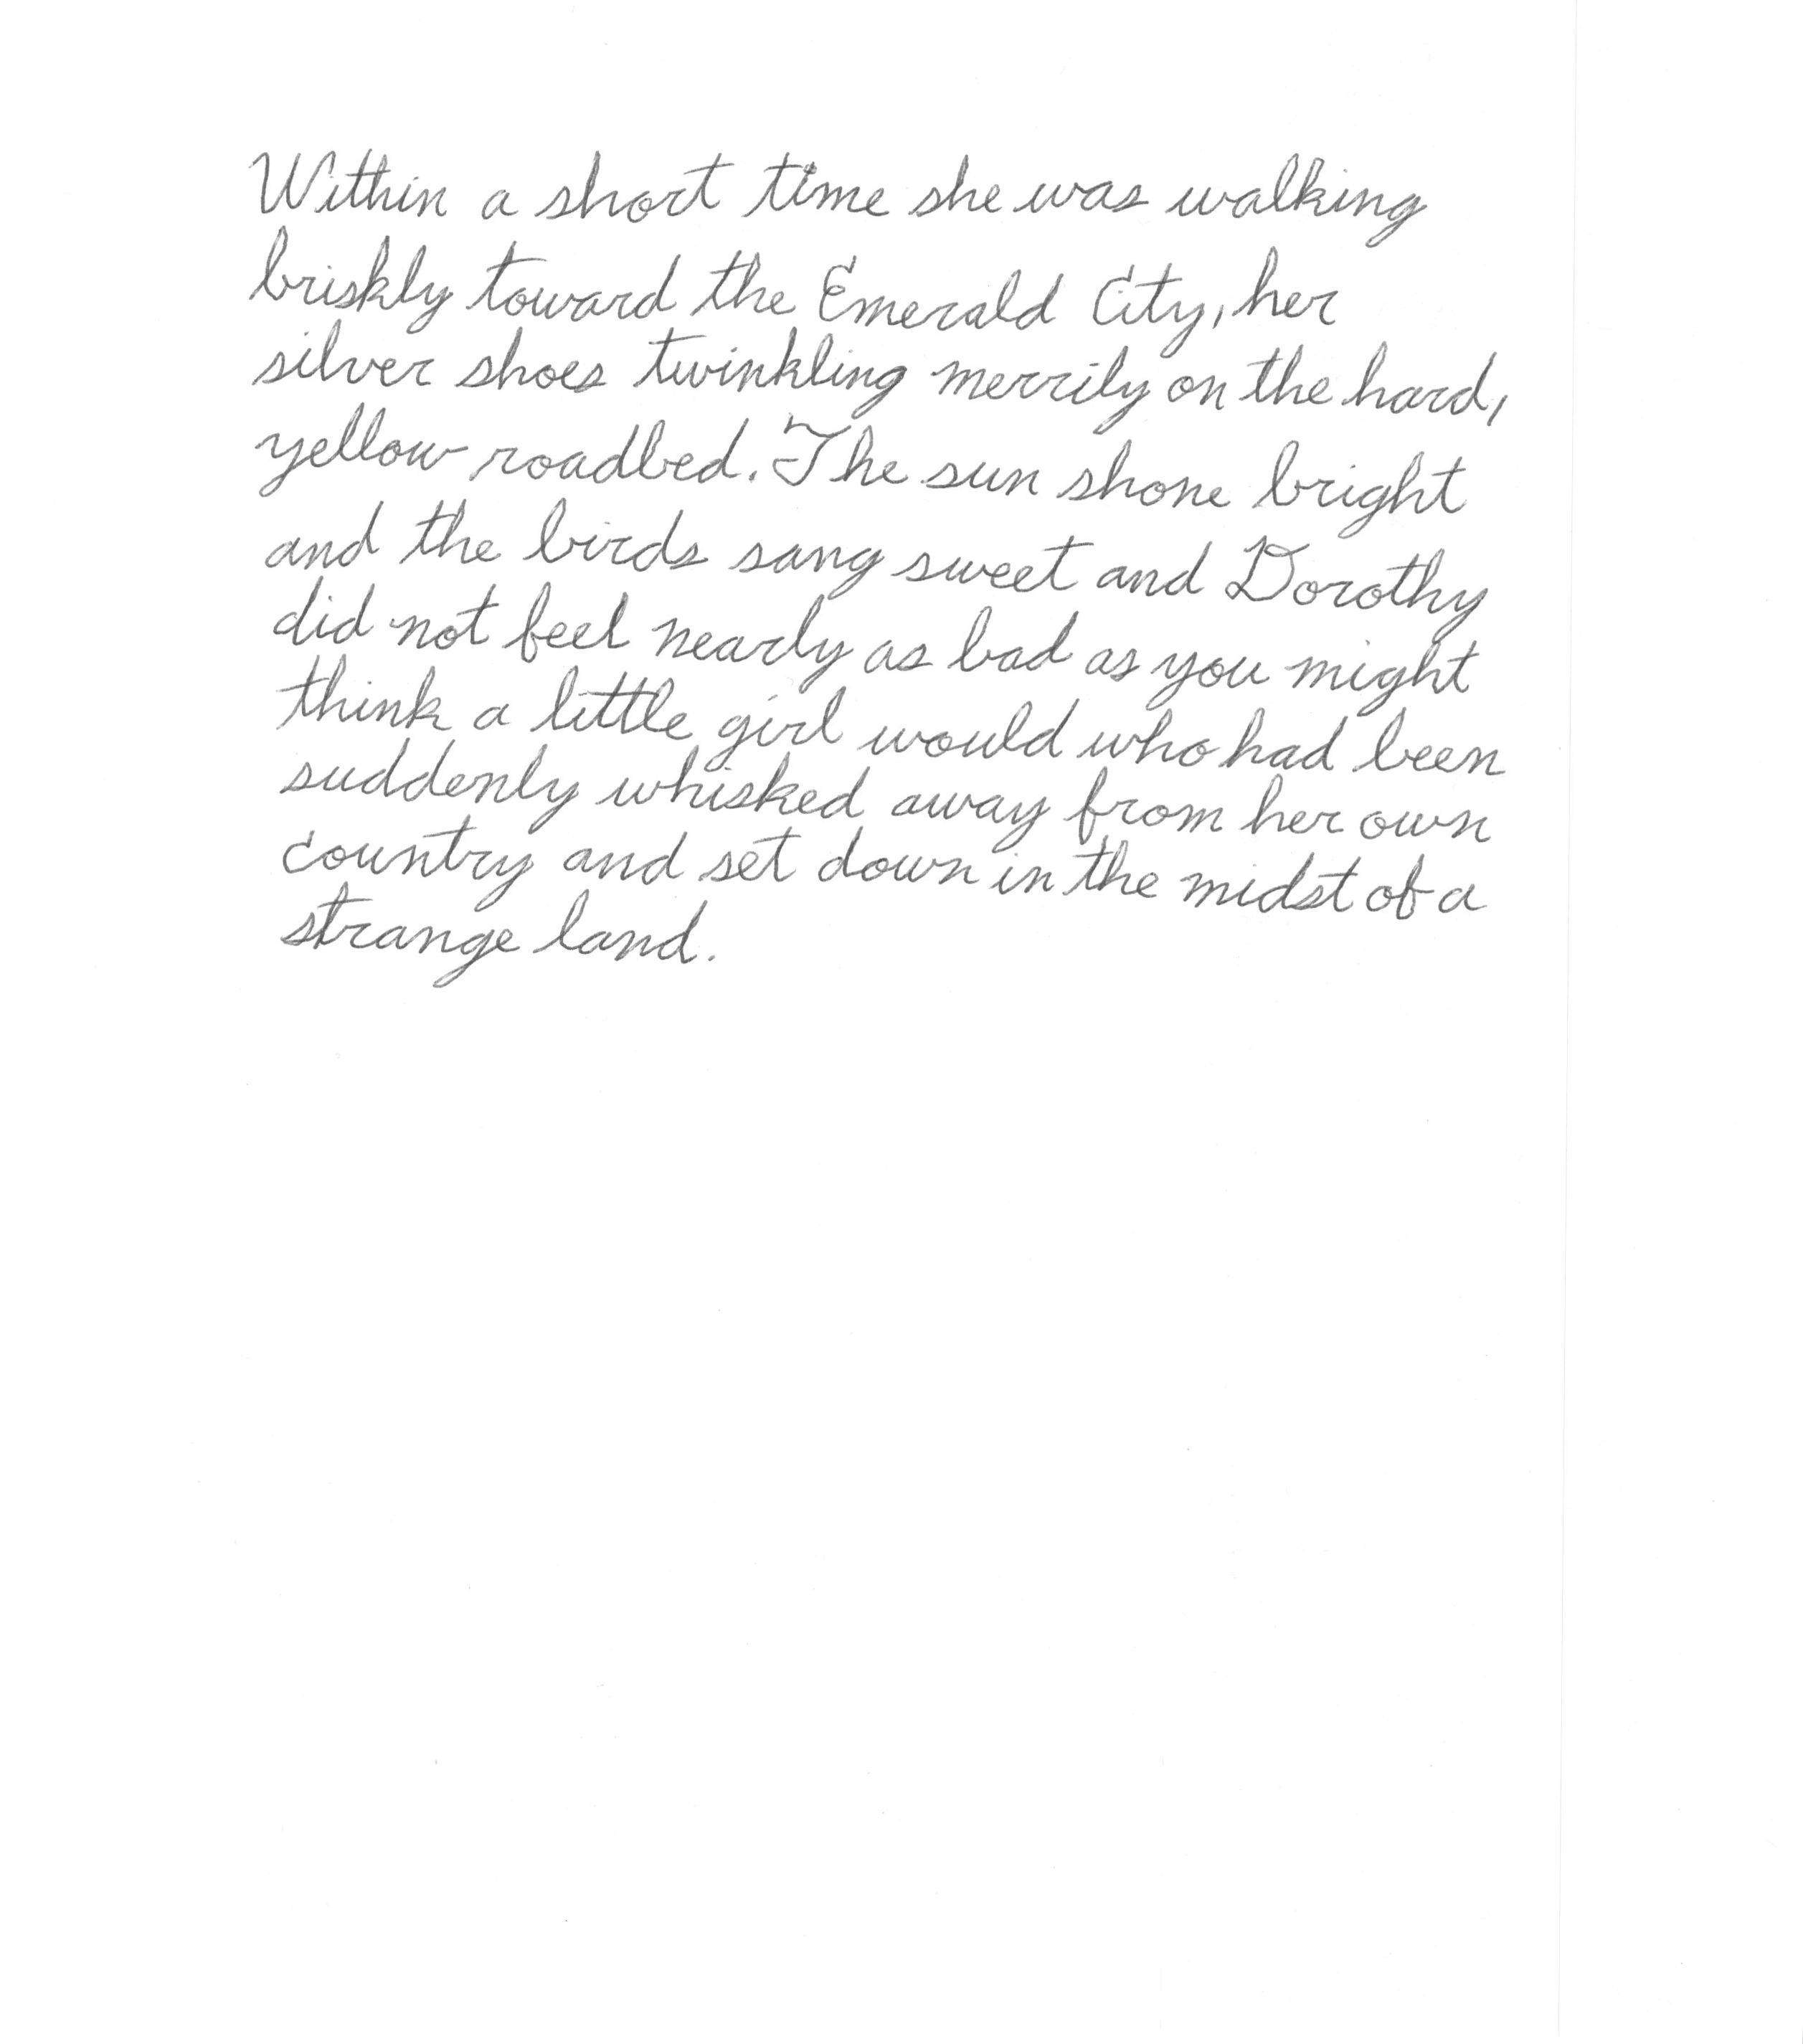 Within a short time she was walking
briskly toward the Emerald City, her
silver shoes twinkling merrily on the hard,
yellow roadbed. The sun shone bright
and the birds sang sweet and Dorothy
did not feel nearly as bad as you might
think a little girl would who had been
suddenly whisked away from her own
country and set down in the midst of a
strange land.